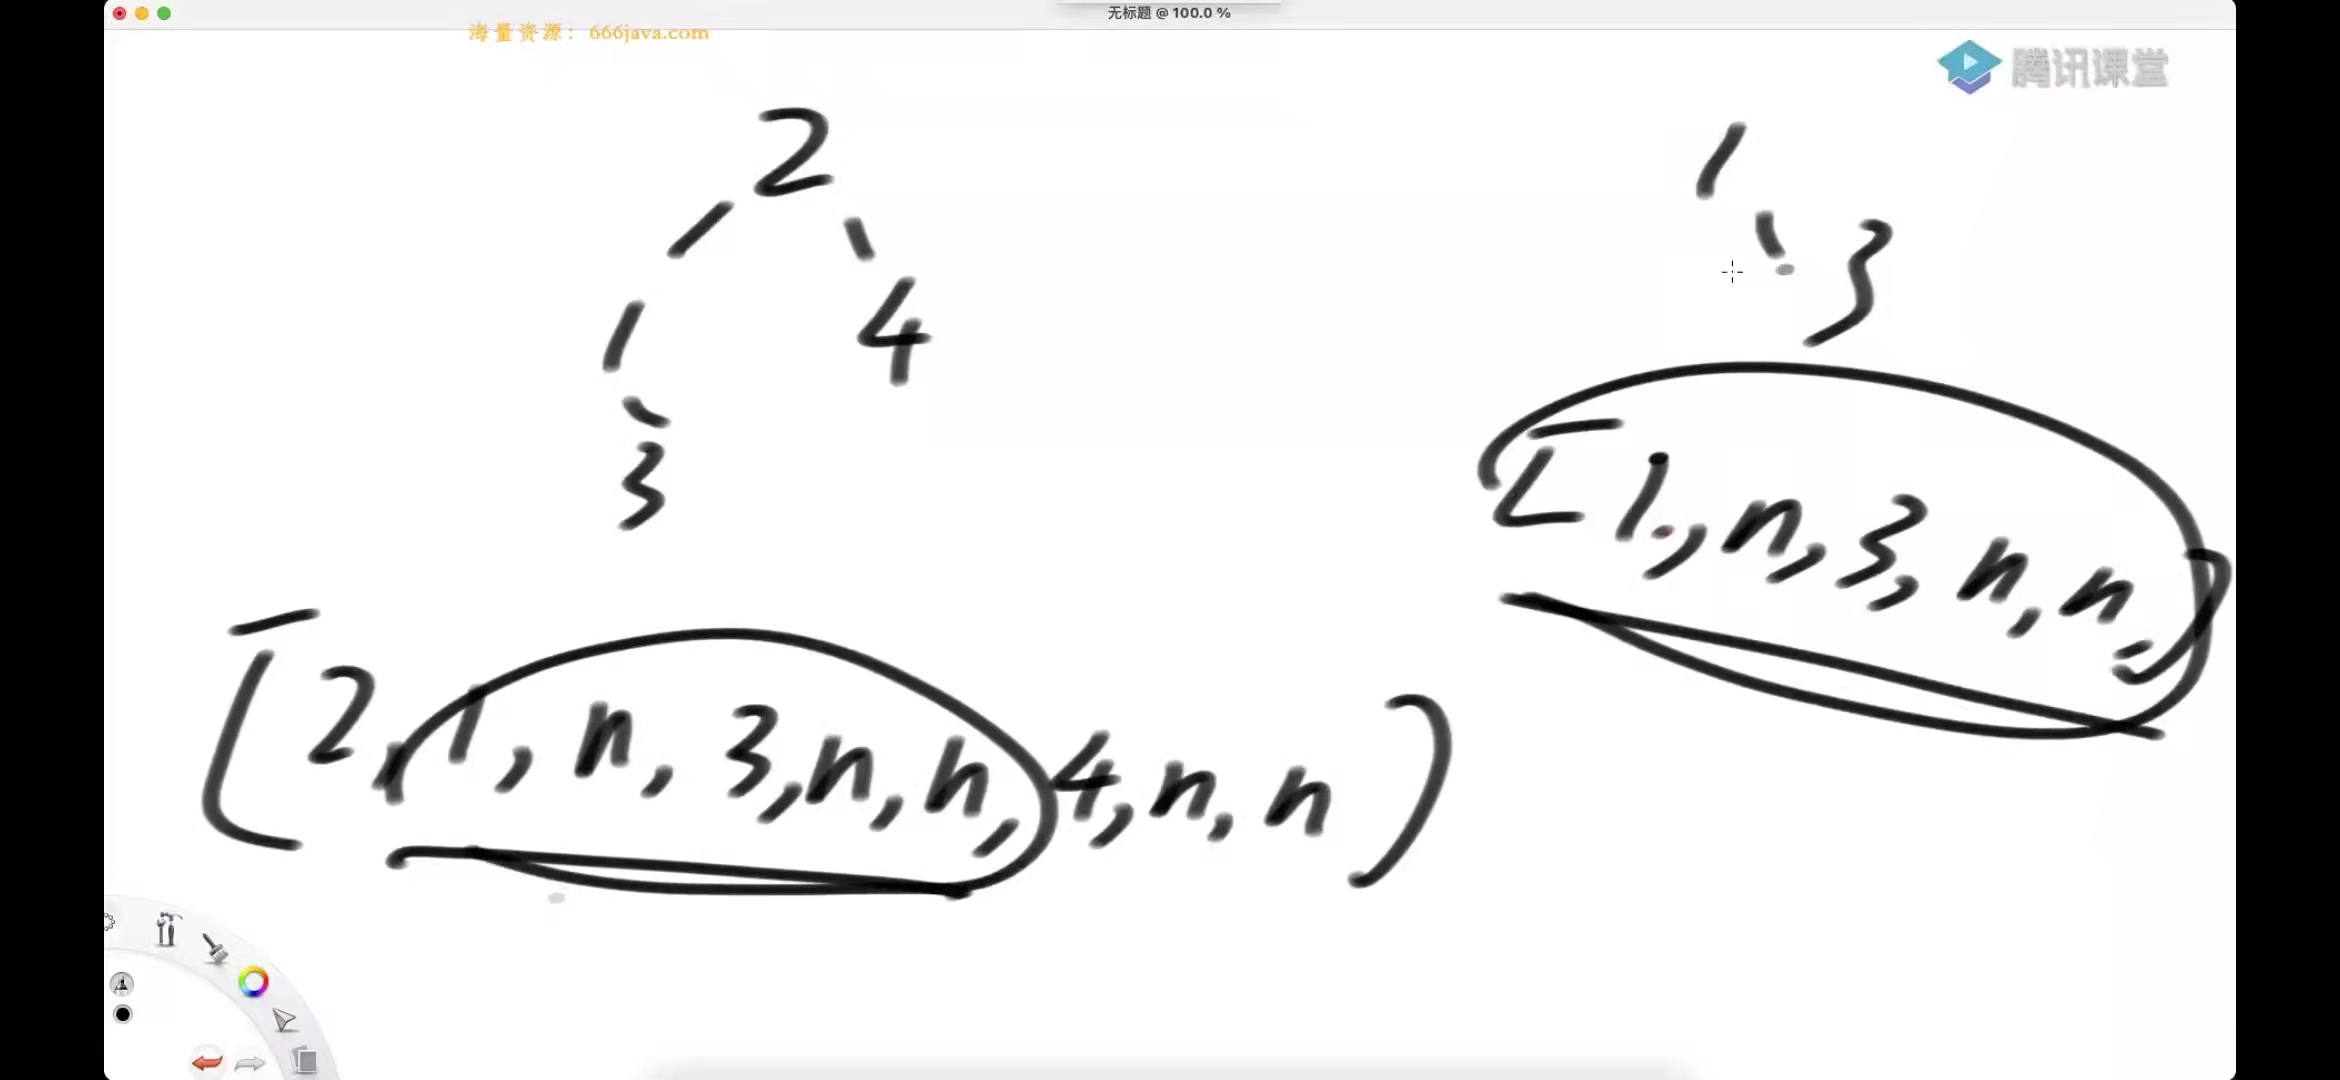 无标题 @ 100.0 %
海量资源：666java.com
腾讯课堂
2
1
4
3
1
3
[1,n,3,n,n,]
[2,1,n,3,n,n,4,n,n]